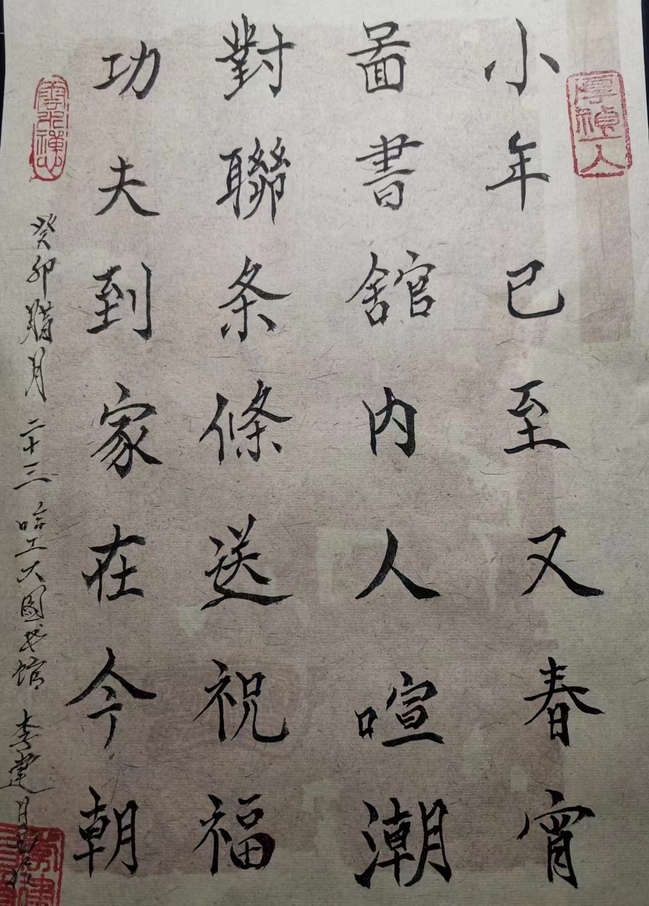 小年已至又春宵
啚書舘内人喧潮
對聯条條送祝福
功夫到家在今朝
癸卯腊月二十三哈工大图书馆李建月